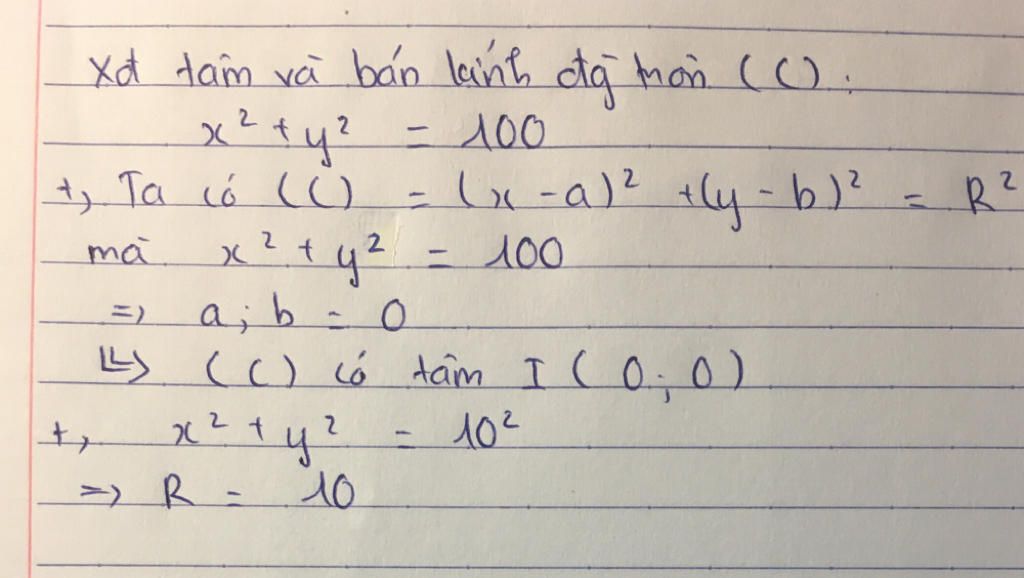 Xđ tâm và bán kính đg tròn (C):
x² + y² = 100
+, Ta có (C) = (x - a)² + (y - b)² = R²
mà x² + y² = 100
=> a; b = 0
=> (C) có tâm I (0; 0)
+, x² + y² = 10²
=> R = 10